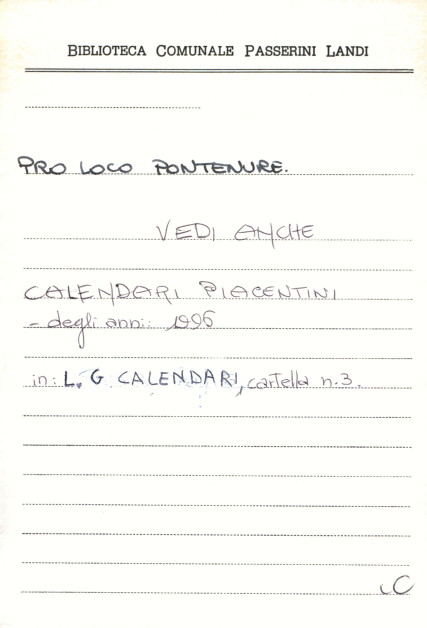 BIBLIOTECA COMUNALE PASSERINI LANDI
PRO LOCO PONTENURE.
VEDI ANCHE
CALENDARI PIACENTINI
- degli anni: 1996
in: L. G CALENDARI, cartella n. 3.